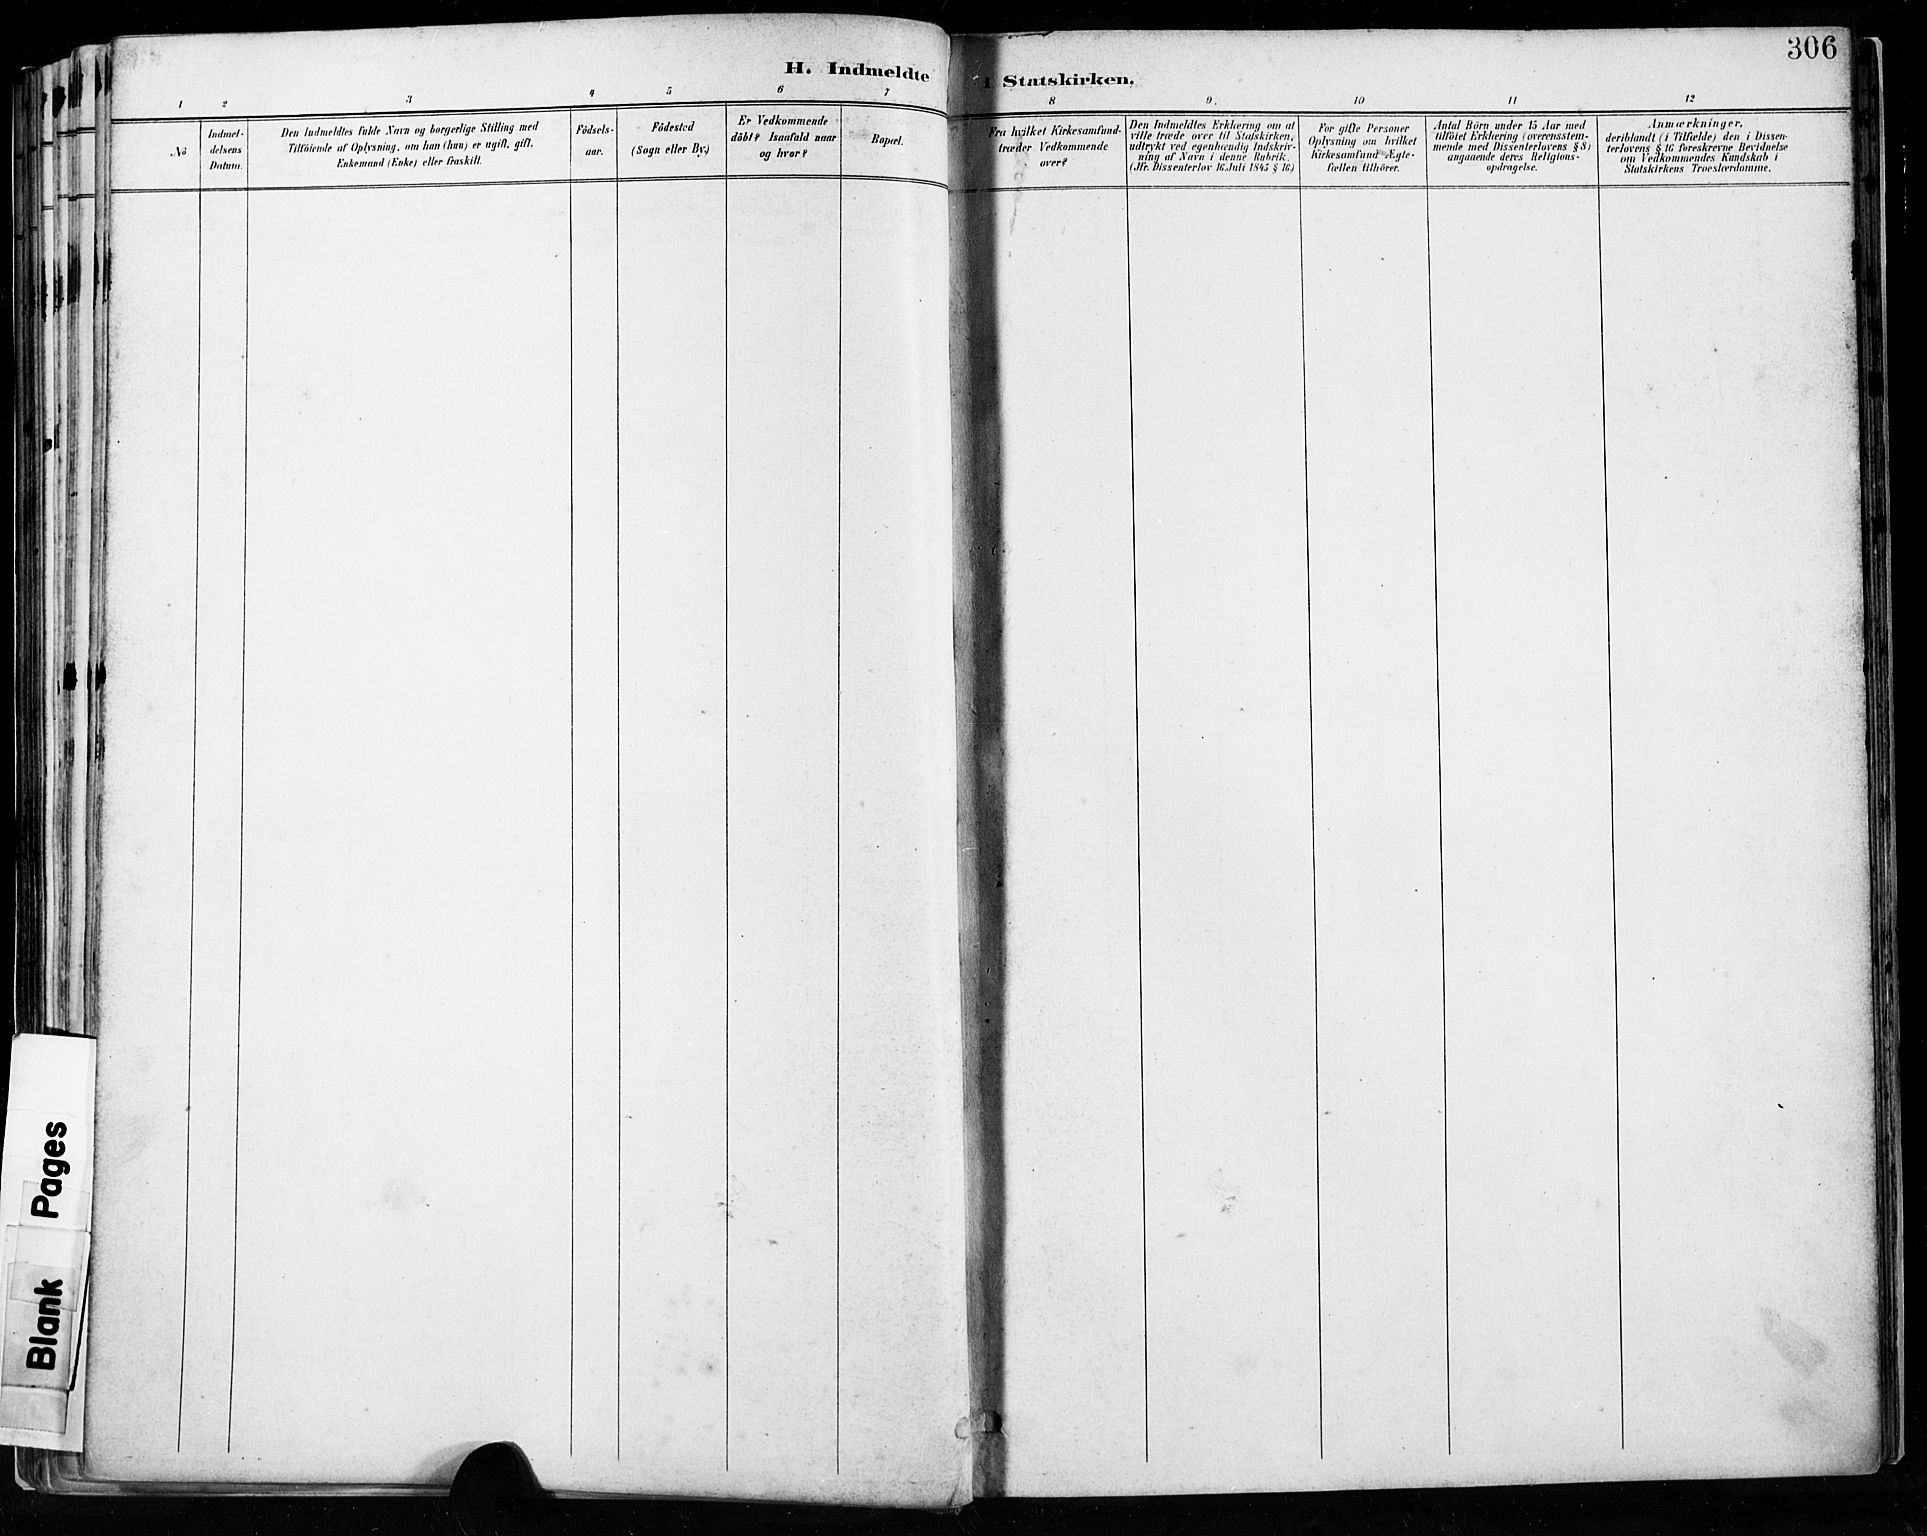 306
H. Indmeldte i Statskirken.
1
2
3
4
5
6
7
8
9.
10
11
12
No
Indmel-
delsens
Datum.
Den Indmeldtes fulde Navn og borgerlige Stilling med
Tilföiende af Oplysning, om han (hun) er ugift, gift,
Enkemand (Enke) eller fraskilt.
Födsels-
aar.
Födested
(Sogn eller By.)
Er Vedkommende
döbt? Isaafald naar
og hvor?
Bopæl.
Fra hvilket Kirkesamfund
træder Vedkommende
over?
Den Indmeldtes Erklæring om at
ville træde over til Statskirken,
udtrykt ved egenhændig Indskriv-
ning af Navn i denne Rubrik.
(Jfr. Dissenterlov 16 Juli 1845 § 16)
For gifte Personer
Oplysning om hvilket
Kirkesamfund Ægte-
fællen tilhörer.
Antal Börn under 15 Aar med
tilföiet Erklæring (overensstem-
mende med Dissenterlovens § 8)
angaaende deres Religions-
opdragelse.
Anmærkninger,
deriblandt (i Tilfælde) den i Dissen-
terlovens § 16 foreskrevne Bevidnelse
om Vedkommendes Kundskab i
Statskirkens Troeslærdomme.
Blank Pages